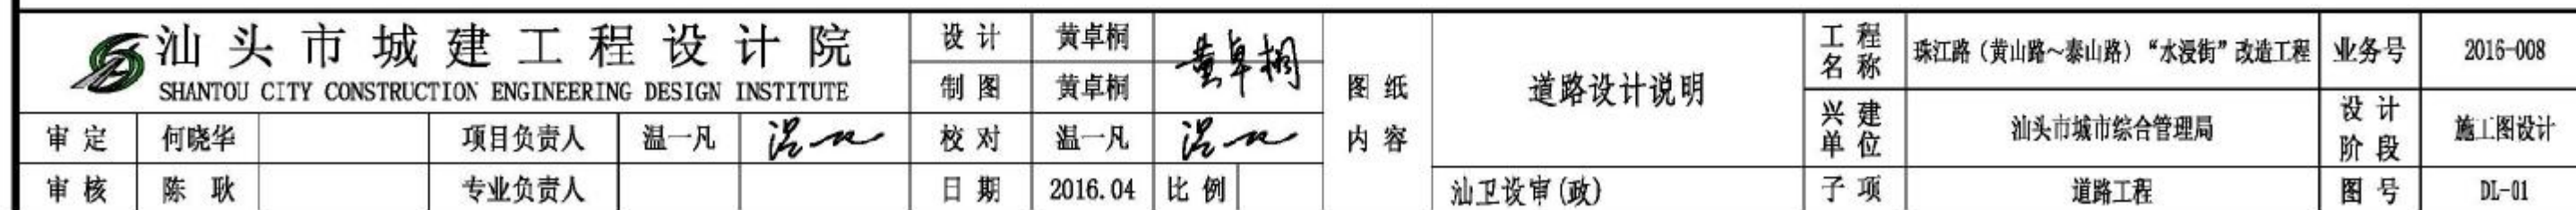 汕头市城建工程设计院
SHANTOU CITY CONSTRUCTION ENGINEERING DESIGN INSTITUTE
审定 何晓华 项目负责人 温一凡
审核 陈耿 专业负责人
设计 黄卓桐
制图 黄卓桐
黄卓桐
校对 温一凡
日期 2016.04 比例
图纸内容
道路设计说明
汕卫设审(政)
工程名称 珠江路（黄山路~泰山路）“水浸街”改造工程 业务号 2016-008
兴建单位 汕头市城市综合管理局 设计阶段 施工图设计
子项 道路工程 图号 DL-01